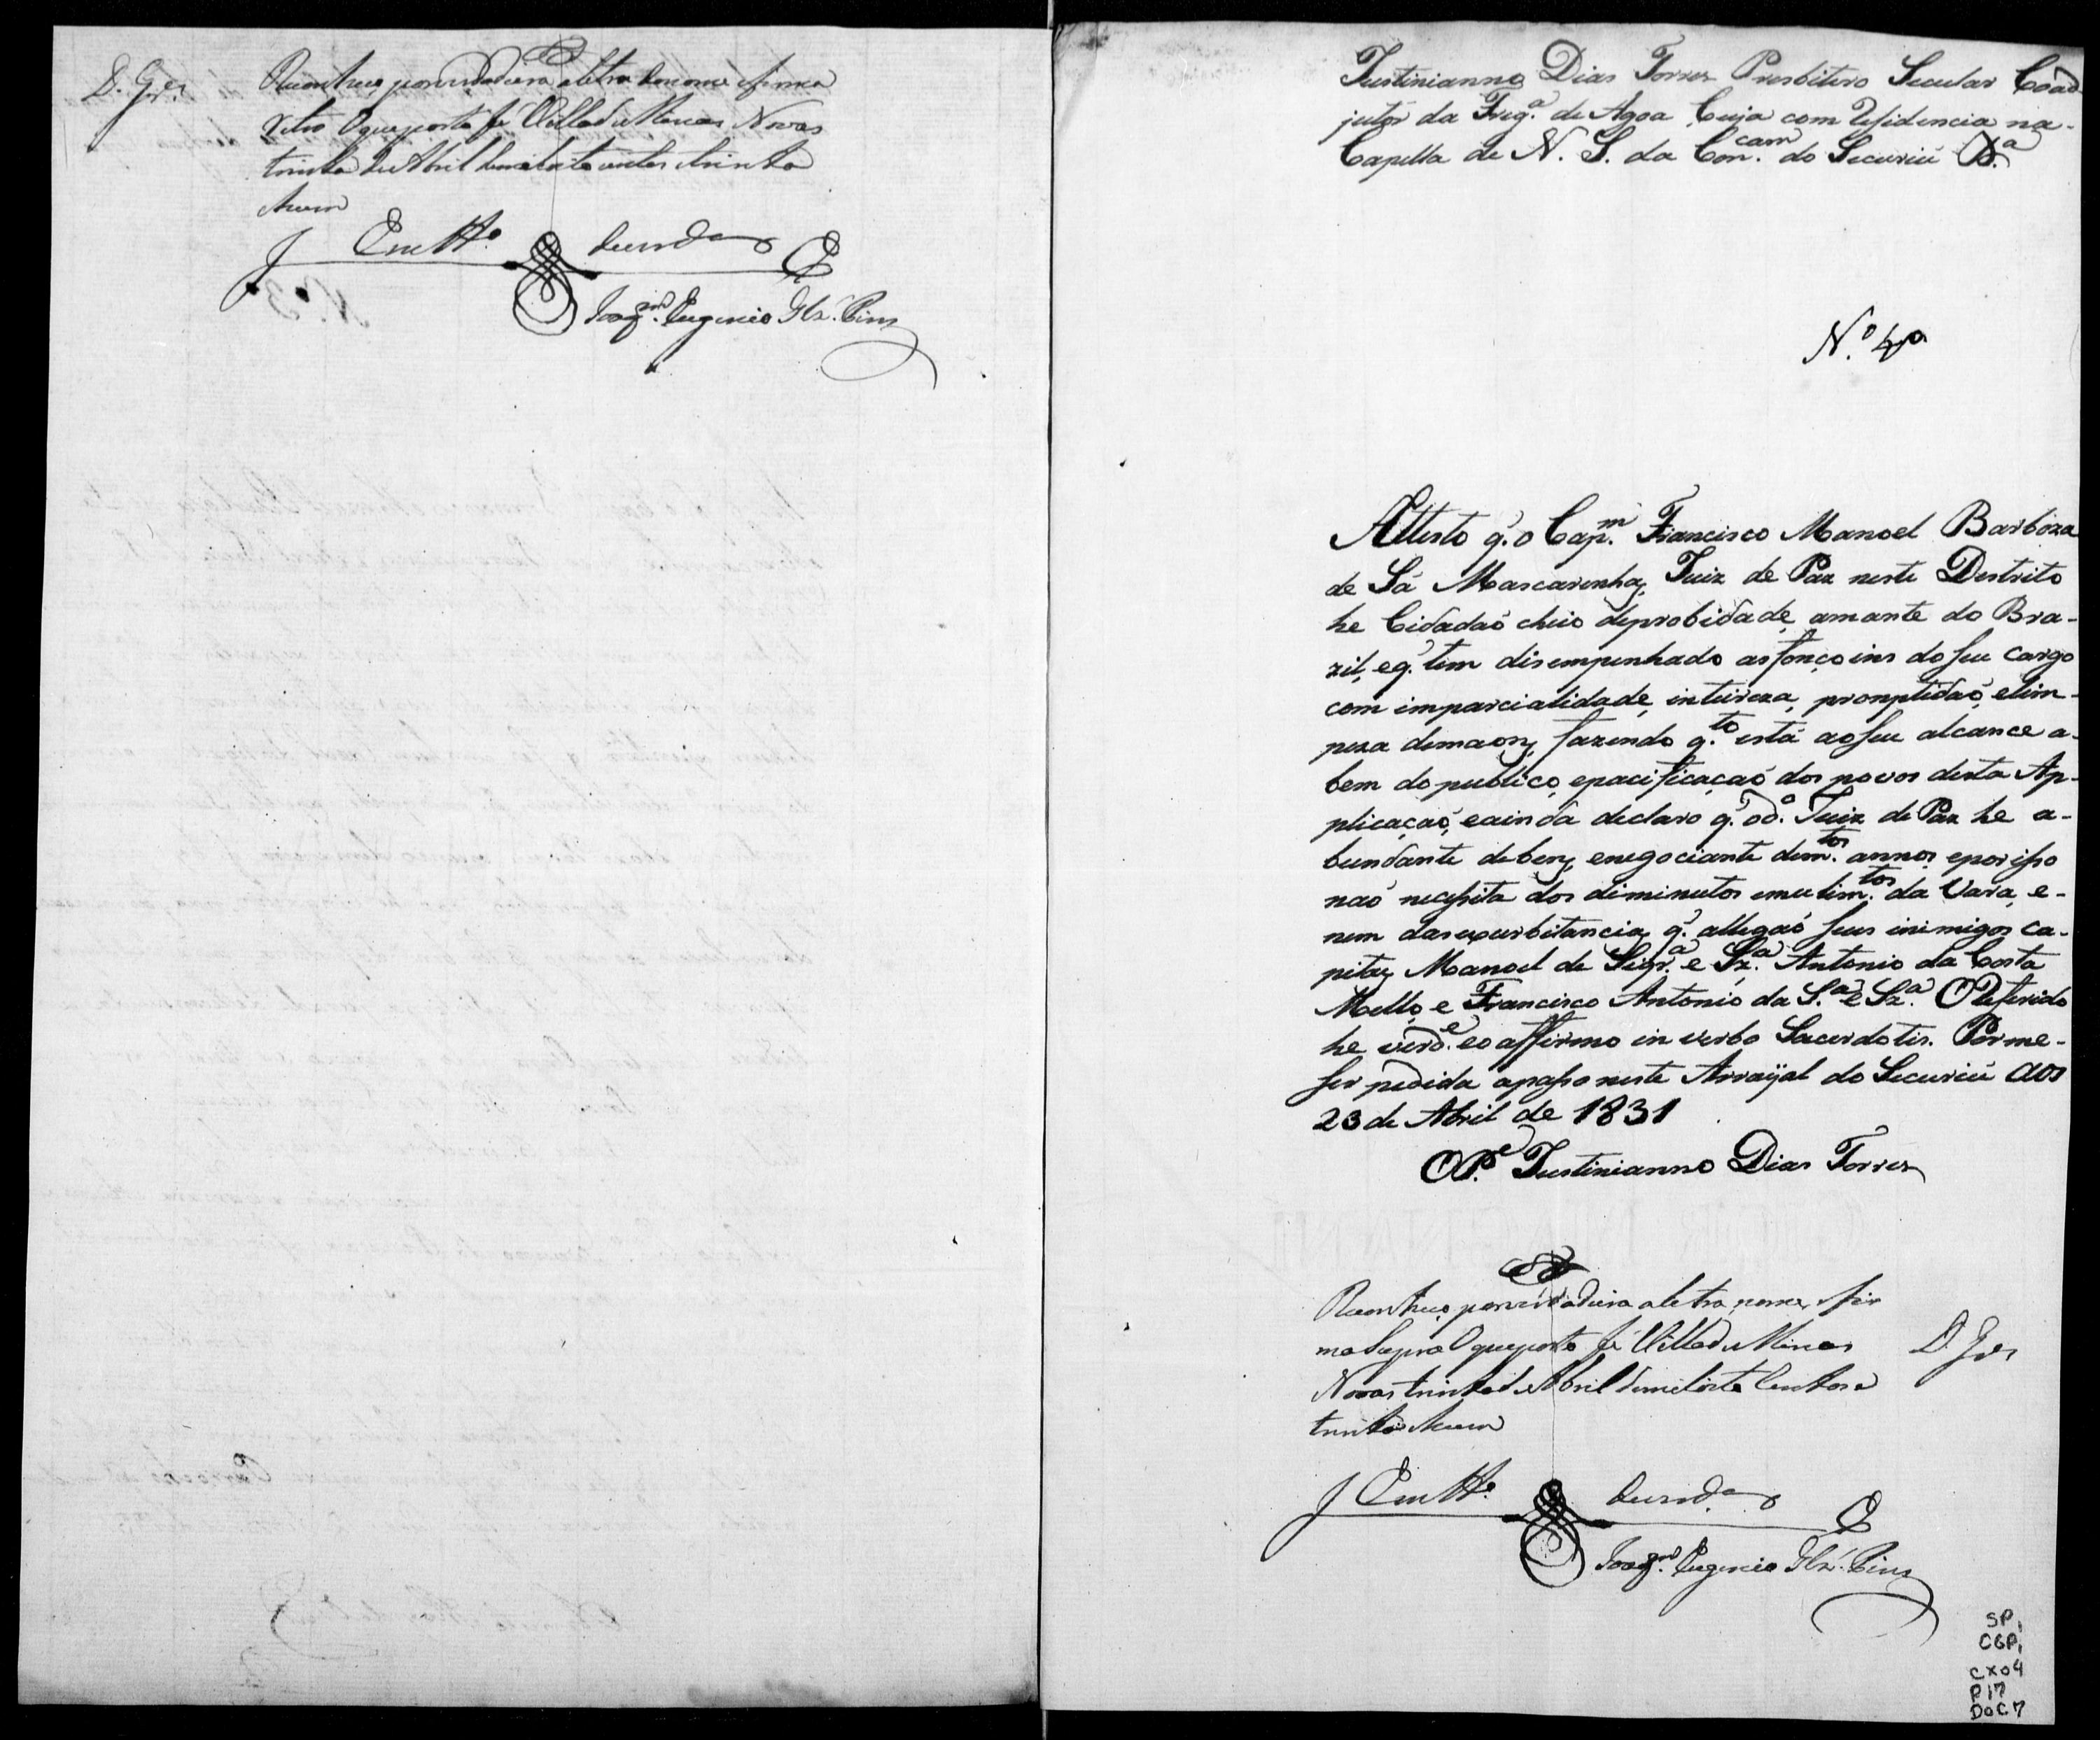 D. Gz.es
Reconheço por verdadeira a letra do nome e firma
retro O que porto fé Villa de Minas Novas
trinta de Abril de mil oito centos e trinta
e hum
Em tt.º de verd.e
Joaq.m Eugenio Glz. Pinr.
Justinianno Dias Torres Presbitero Secular Coad-
jutor da Freg.ª de Agoa Çuja com residencia na-
Capella de N. S. da Con.cam do Secúriú &.ª
N.º 4º
Attesto q. o Cap.m Francisco Manoel Barboza
de Sá Mascarenhas, Juiz de Paz neste Destrito
he Cidadaõ cheio de probidade, amante do Bra-
zil, e q. tem disempenhado as fonçoins do seu Cargo
com imparcialidade, inteireza, promptidaõ, e lim-
peza de maons, fazendo q.to está ao seu alcance a-
bem do publico, e pacificaçaõ dos povos desta Ap-
plicaçaõ, e ainda declaro q. o d.º Juiz de Paz he a-
bundante de bens, e negociante de m.tos annos, e por isso
naõ necessita dos diminutos emulim.tos da Vara, e-
nem das exurbitancias q. allegaõ seus inimigos ca-
pitaes Manoel de Siqr.ª e Sz.ª Antonio da Costa
Mello, e Francisco Antonio da S.ª e Sz.ª O referido
he verd.e e o affirmo in verbo Sacerdotis. Por me-
ser pedida a passo neste Arraÿal do Secúriú aos
23 de Abril de 1831
O P.e Justinianno Dias Torres
Reconheço por verdadeira a letra, nome, e fir
ma Supra O que porto fé Villa de Minas
Novas trinta de Abril de mil oito Centos e
trinta e hum
D. Gz.es
Em tt.º de verd.e
Joaq.m Eugenio Glz. Pinr.
SP,
CGP,
CX04
P17
DOC.7